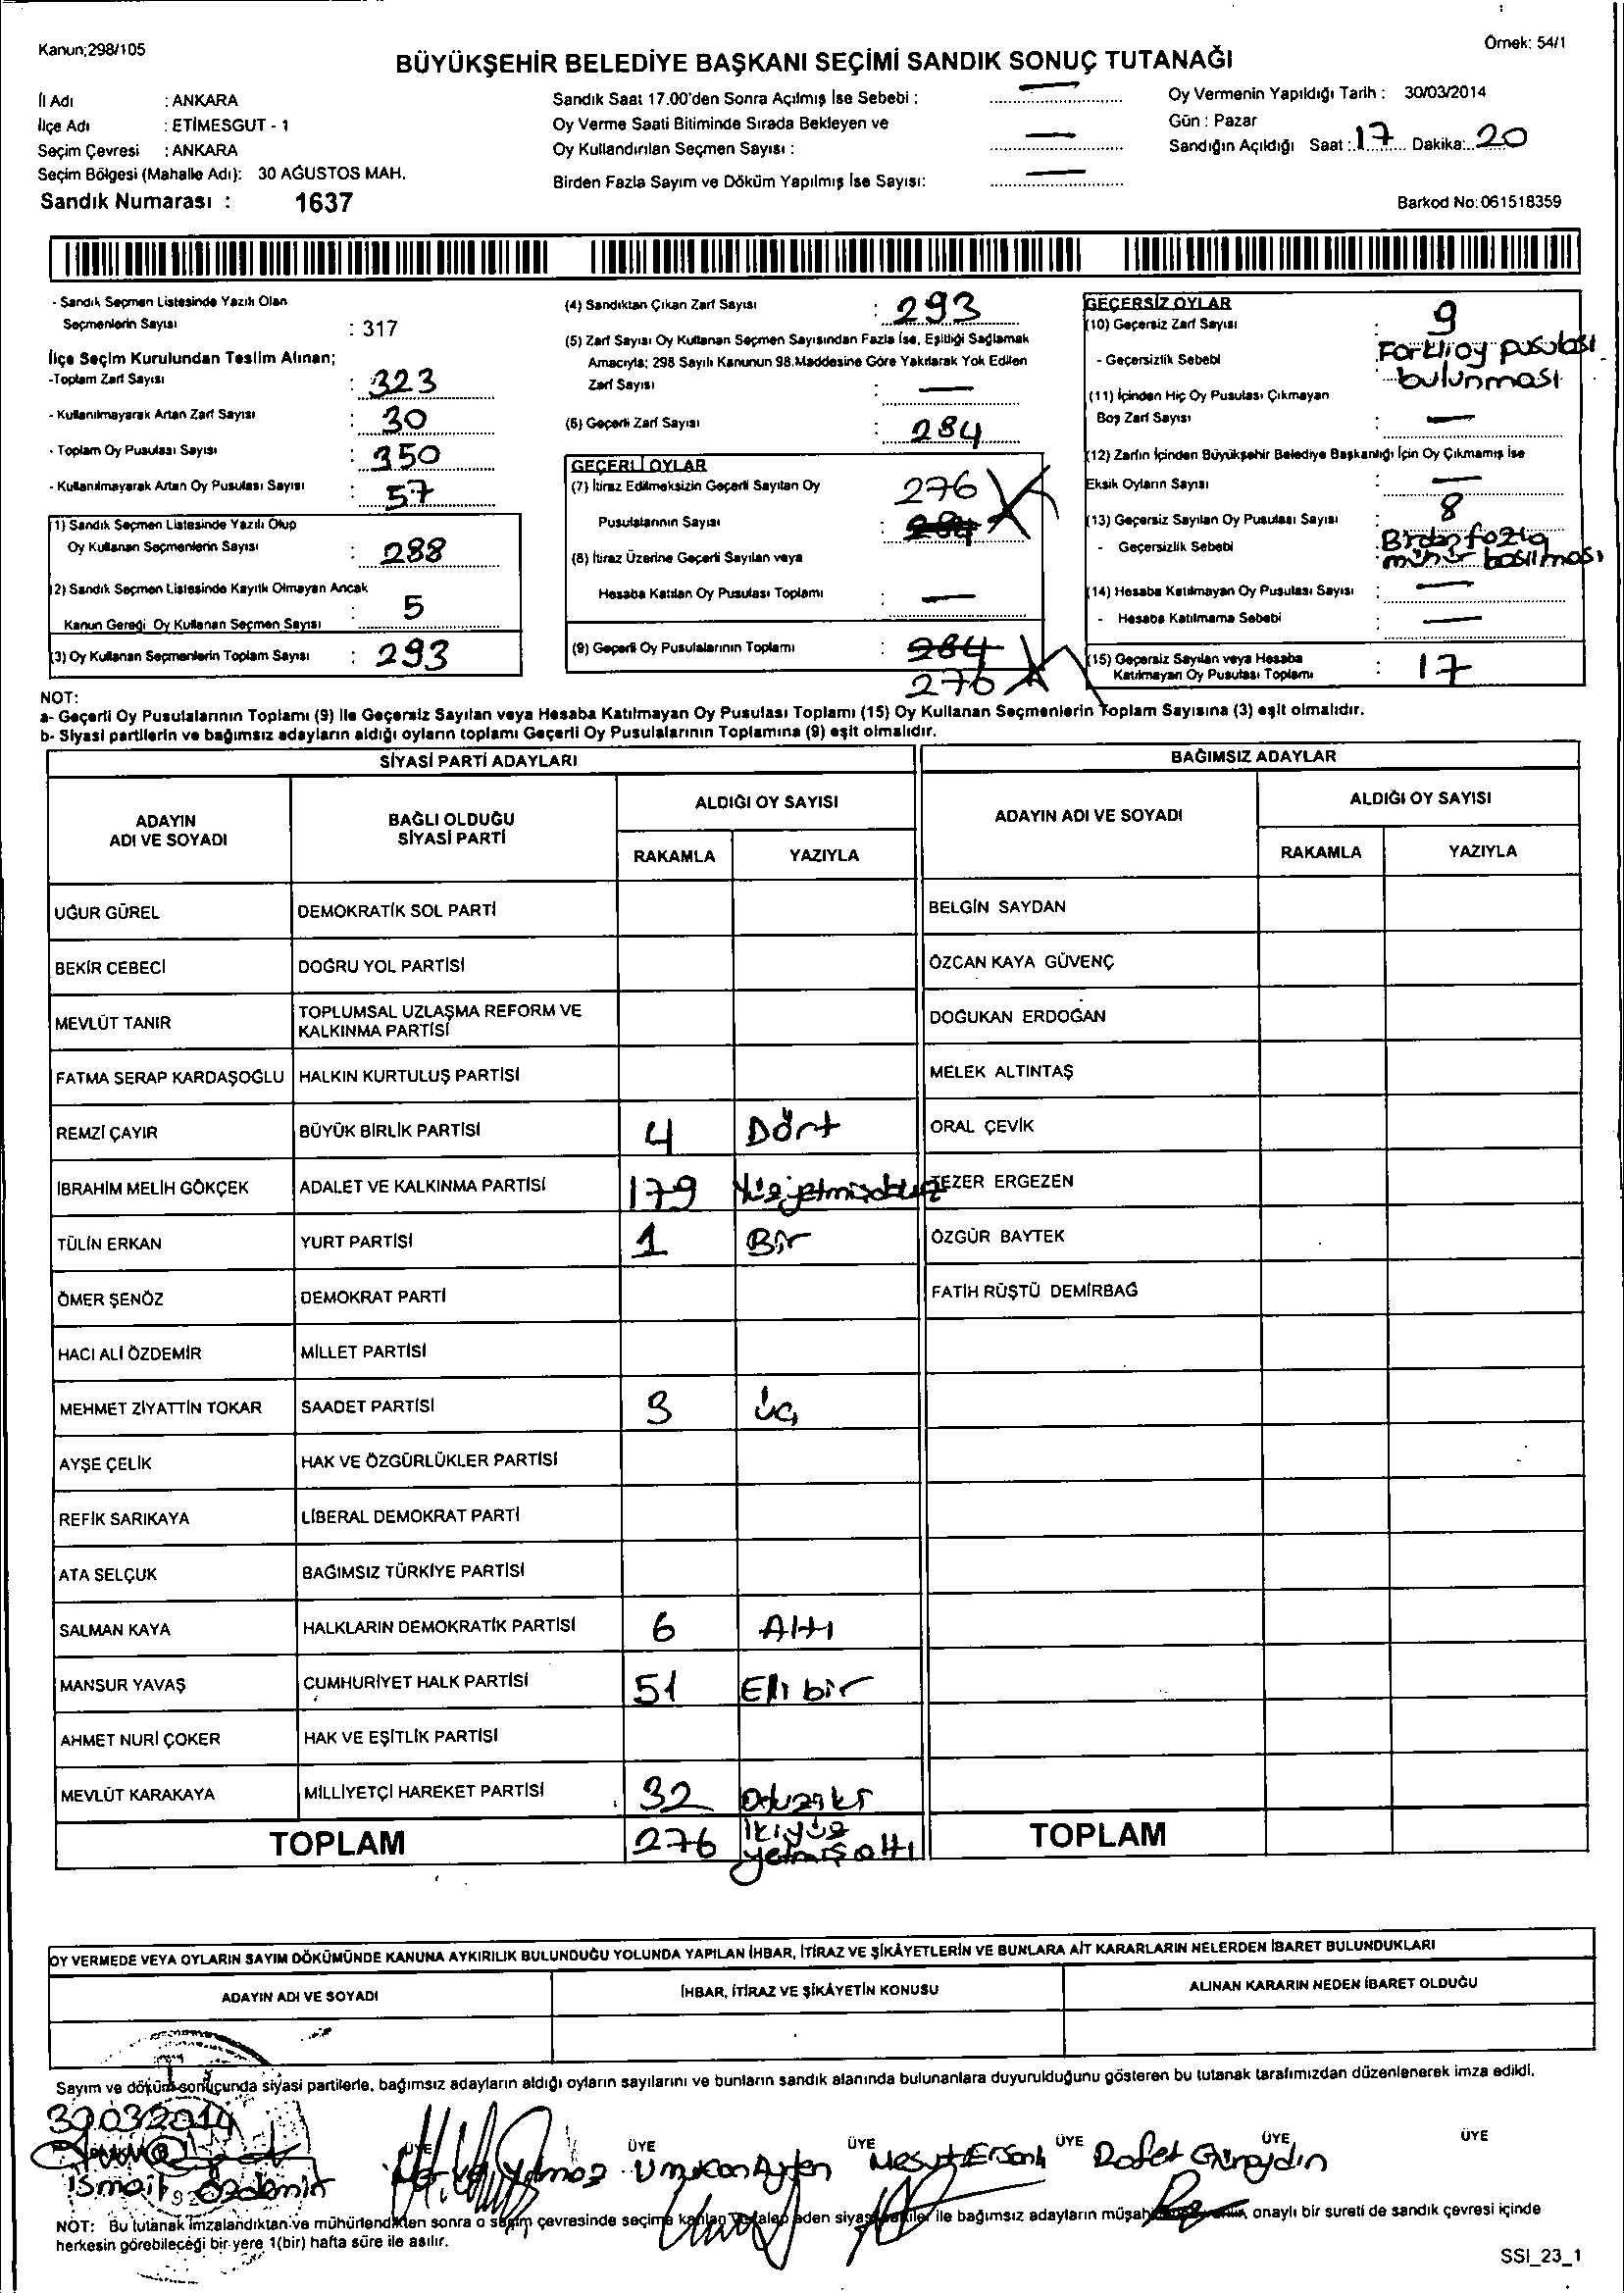 Kanun;298/105
Örnek: 54/1
BÜYÜKŞEHİR BELEDİYE BAŞKANI SEÇİMİ SANDIK SONUÇ TUTANAĞI
İl Adı : ANKARA
İlçe Adı : ETİMESGUT - 1
Seçim Çevresi : ANKARA
Seçim Bölgesi (Mahalle Adı): 30 AĞUSTOS MAH.
Sandık Numarası : 1637
Sandık Saat 17.00'den Sonra Açılmış İse Sebebi : —
Oy Verme Saati Bitiminde Sırada Bekleyen ve
Oy Kullandırılan Seçmen Sayısı : —
Birden Fazla Sayım ve Döküm Yapılmış İse Sayısı: —
Oy Vermenin Yapıldığı Tarih : 30/03/2014
Gün : Pazar
Sandığın Açıldığı Saat : 17 Dakika: 20
Barkod No: 061518359
- Sandık Seçmen Listesinde Yazılı Olan
Seçmenlerin Sayısı : 317
İlçe Seçim Kurulundan Teslim Alınan;
-Toplam Zarf Sayısı : 323
- Kullanılmayarak Artan Zarf Sayısı : 30
- Toplam Oy Pusulası Sayısı : 350
- Kullanılmayarak Artan Oy Pusulası Sayısı : 57
(1) Sandık Seçmen Listesinde Yazılı Olup
Oy Kullanan Seçmenlerin Sayısı : 288
(2) Sandık Seçmen Listesinde Kayıtlı Olmayan Ancak
Kanun Gereği Oy Kullanan Seçmen Sayısı : 5
(3) Oy Kullanan Seçmenlerin Toplam Sayısı : 293
(4) Sandıktan Çıkan Zarf Sayısı : 293
(5) Zarf Sayısı Oy Kullanan Seçmen Sayısından Fazla İse, Eşitliği Sağlamak
Amacıyla; 298 Sayılı Kanunun 98.Maddesine Göre Yakılarak Yok Edilen
Zarf Sayısı : —
(6) Geçerli Zarf Sayısı : 284
GEÇERLİ OYLAR
(7) İtiraz Edilmeksizin Geçerli Sayılan Oy 276
Pusulalarının Sayısı : 284
(8) İtiraz Üzerine Geçerli Sayılan veya
Hesaba Katılan Oy Pusulası Toplamı : —
(9) Geçerli Oy Pusulalarının Toplamı : 284
276
GEÇERSİZ OYLAR
(10) Geçersiz Zarf Sayısı : 9
- Geçersizlik Sebebi : Farklı oy pusulası
bulunması
(11) İçinden Hiç Oy Pusulası Çıkmayan
Boş Zarf Sayısı : —
(12) Zarfın İçinden Büyükşehir Belediye Başkanlığı İçin Oy Çıkmamış İse
Eksik Oyların Sayısı : —
(13) Geçersiz Sayılan Oy Pusulası Sayısı : 8
- Geçersizlik Sebebi : Birden fazla
mühür basılması
(14) Hesaba Katılmayan Oy Pusulası Sayısı : —
- Hesaba Katılmama Sebebi : —
(15) Geçersiz Sayılan veya Hesaba
Katılmayan Oy Pusulası Toplamı : 17
NOT:
a- Geçerli Oy Pusulalarının Toplamı (9) İle Geçersiz Sayılan veya Hesaba Katılmayan Oy Pusulası Toplamı (15) Oy Kullanan Seçmenlerin Toplam Sayısına (3) eşit olmalıdır.
b- Siyasi partilerin ve bağımsız adayların aldığı oyların toplamı Geçerli Oy Pusulalarının Toplamına (9) eşit olmalıdır.
SİYASİ PARTİ ADAYLARI
BAĞIMSIZ ADAYLAR
ADAYIN
ADI VE SOYADI
BAĞLI OLDUĞU
SİYASİ PARTİ
ALDIĞI OY SAYISI
RAKAMLA YAZIYLA
ADAYIN ADI VE SOYADI
ALDIĞI OY SAYISI
RAKAMLA YAZIYLA
UĞUR GÜREL DEMOKRATİK SOL PARTİ BELGİN SAYDAN
BEKİR CEBECİ DOĞRU YOL PARTİSİ ÖZCAN KAYA GÜVENÇ
MEVLÜT TANIR TOPLUMSAL UZLAŞMA REFORM VE
KALKINMA PARTİSİ DOĞUKAN ERDOĞAN
FATMA SERAP KARDAŞOĞLU HALKIN KURTULUŞ PARTİSİ MELEK ALTINTAŞ
REMZİ ÇAYIR BÜYÜK BİRLİK PARTİSİ 4 Dört ORAL ÇEVİK
İBRAHİM MELİH GÖKÇEK ADALET VE KALKINMA PARTİSİ 179 Yüzyetmişdokuz TEZER ERGEZEN
TÜLİN ERKAN YURT PARTİSİ 1 Bir ÖZGÜR BAYTEK
ÖMER ŞENÖZ DEMOKRAT PARTİ FATİH RÜŞTÜ DEMİRBAĞ
HACI ALİ ÖZDEMİR MİLLET PARTİSİ
MEHMET ZİYATTİN TOKAR SAADET PARTİSİ 3 üç
AYŞE ÇELİK HAK VE ÖZGÜRLÜKLER PARTİSİ
REFİK SARIKAYA LİBERAL DEMOKRAT PARTİ
ATA SELÇUK BAĞIMSIZ TÜRKİYE PARTİSİ
SALMAN KAYA HALKLARIN DEMOKRATİK PARTİSİ 6 Altı
MANSUR YAVAŞ CUMHURİYET HALK PARTİSİ 51 Elli bir
AHMET NURİ ÇOKER HAK VE EŞİTLİK PARTİSİ
MEVLÜT KARAKAYA MİLLİYETÇİ HAREKET PARTİSİ 32 Otuziki
TOPLAM 276 ikiyüz
yetmiş altı TOPLAM
OY VERMEDE VEYA OYLARIN SAYIM DÖKÜMÜNDE KANUNA AYKIRILIK BULUNDUĞU YOLUNDA YAPILAN İHBAR, İTİRAZ VE ŞİKÂYETLERİN VE BUNLARA AİT KARARLARIN NELERDEN İBARET BULUNDUKLARI
ADAYIN ADI VE SOYADI İHBAR, İTİRAZ VE ŞİKÂYETİN KONUSU ALINAN KARARIN NEDEN İBARET OLDUĞU
Sayım ve döküm sonuçunda siyasi partilerle, bağımsız adayların aldığı oyların sayılarını ve bunların sandık alanında bulunanlara duyurulduğunu gösteren bu tutanak tarafımızdan düzenlenerek imza edildi.
30.03.2014
BAŞKAN ÜYE ÜYE ÜYE ÜYE ÜYE ÜYE
İsmail Özdemir Yılmaz Umutcan Ayten Mesut Ersanlı Dafet Günaydın
NOT: Bu tutanak imzalandıktan ve mühürlendikten sonra o seçim çevresinde seçime katılan siyasi partiler ile bağımsız adayların onaylı bir sureti de sandık çevresi içinde
herkesin görebileceği bir yere 1(bir) hafta süre ile asılır.
SSI_23_1